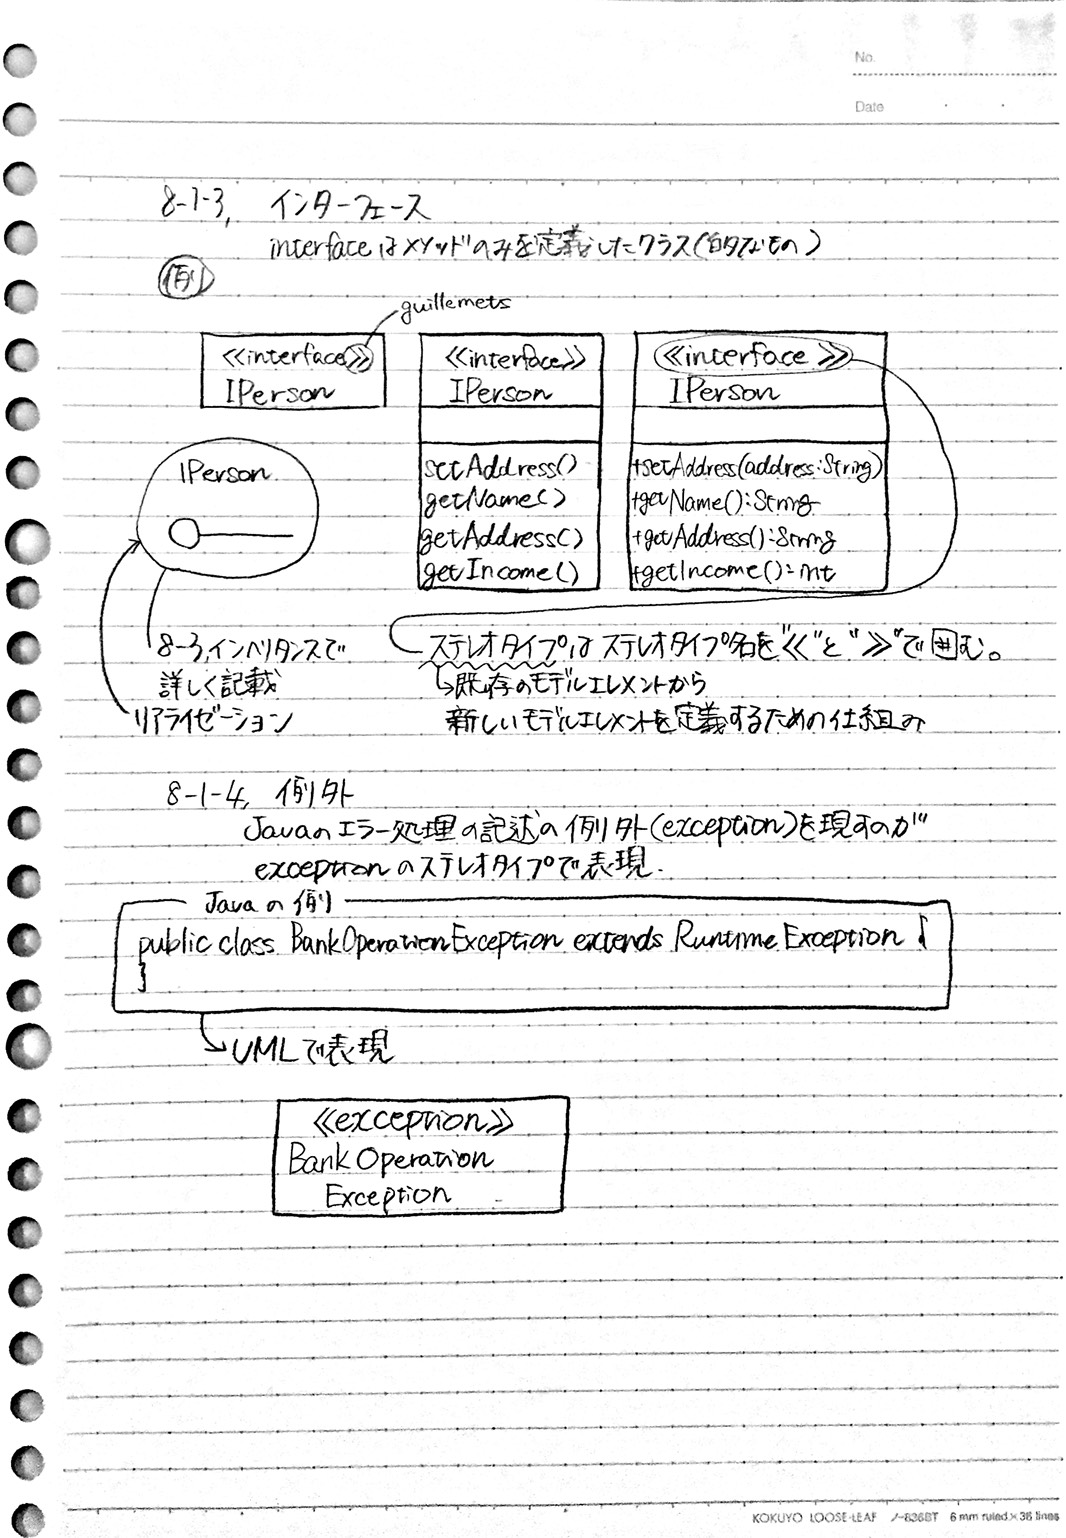 No.
Date
8-1-3, インターフェース
interfaceはメソッドのみを定義したクラス(的なもの)
例
guillemets
≪interface≫
IPerson
≪interface≫
IPerson
setAddress()
getName()
getAddress()
getIncome()
≪interface≫
IPerson
+setAddress(address:String)
+getName():String
+getAddress():String
+getIncome():int
IPerson
8-3,インヘリタンスで
詳しく記載
リアライゼーション
ステレオタイプはステレオタイプ名を"≪"と"≫"で囲む。
既存のモデルエレメントから
新しいモデルエレメントを定義するための仕組み
8-1-4, 例外
Javaのエラー処理の記述の例外(exception)を現すのが
exceptionのステレオタイプで表現.
Javaの例
public class BankOperationException extends RuntimeException {
}
UMLで表現
≪exception≫
BankOperation
Exception
KOKUYO LOOSE-LEAF ノ-836BT 6 mm ruled×36 lines